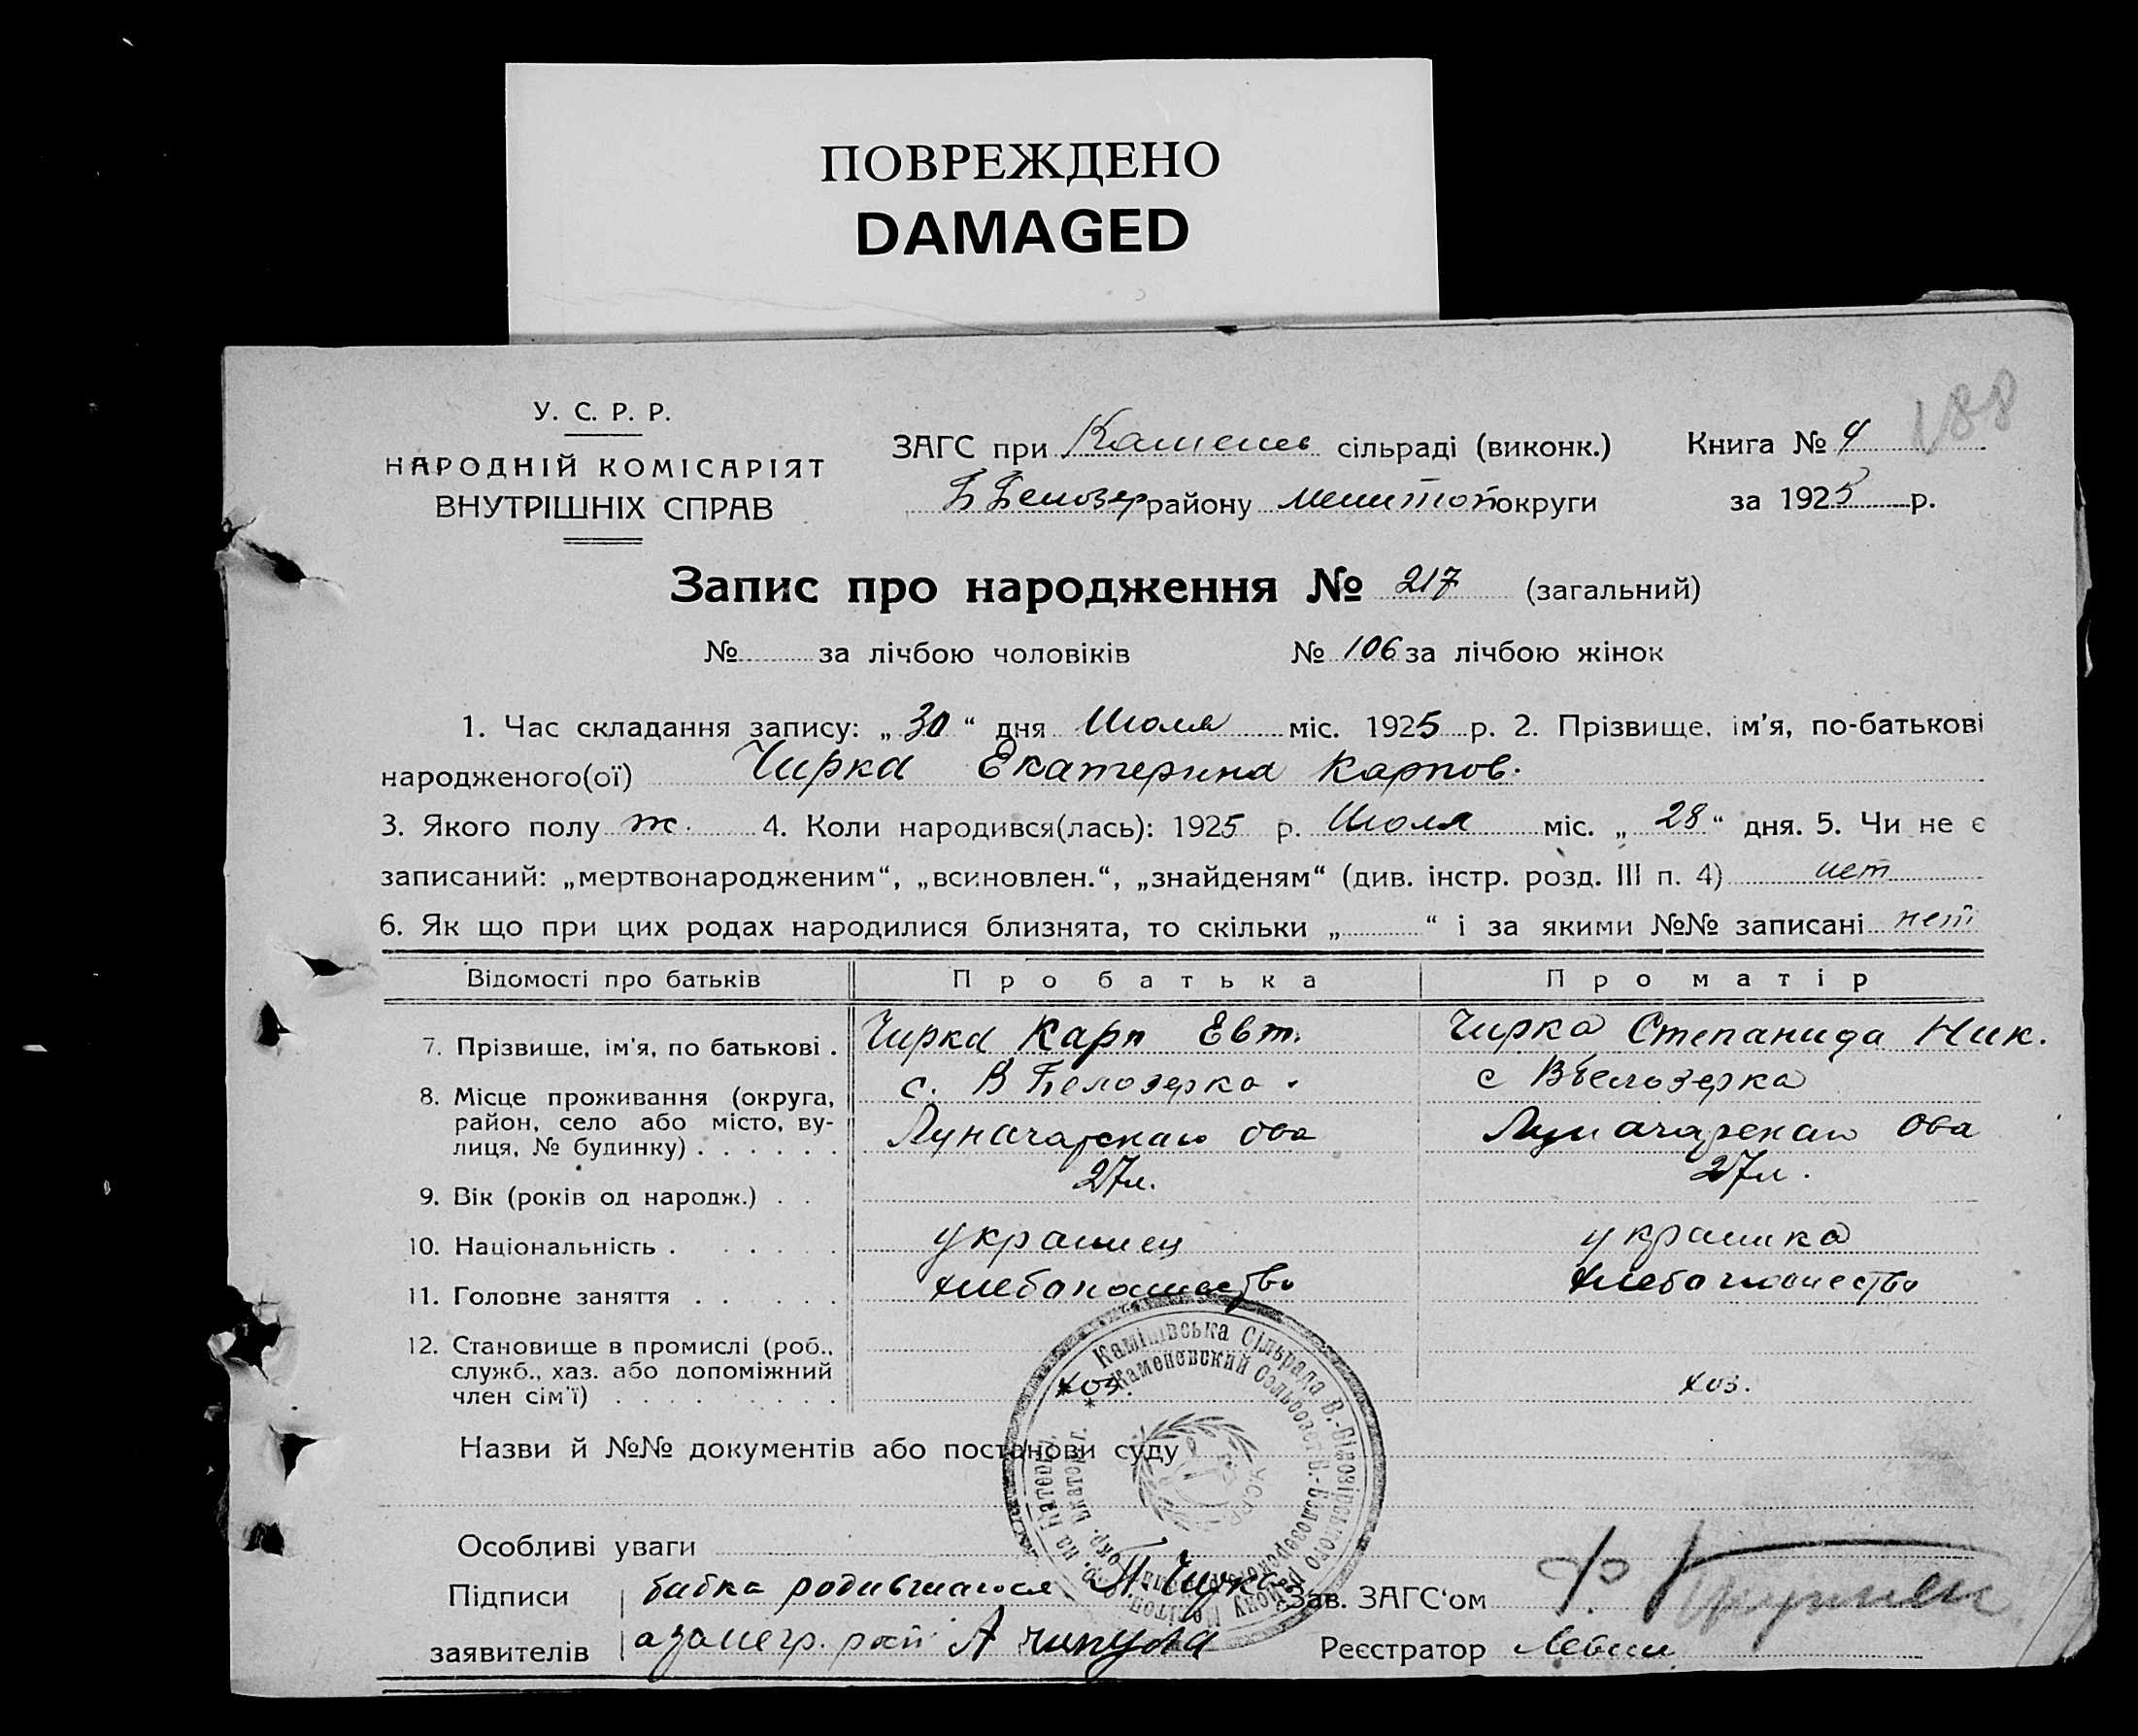 ПОВРЕЖДЕНО
DAMAGED
188
У. С. Р. Р.
НАРОДНІЙ КОМІСАРІЯТ
ВНУТРІШНІХ СПРАВ
ЗАГС при Камень сільраді (виконк.)
Б Белозер району Мелитоп округи
Книга № 4
за 1925 р.
Запис про народження № 217 (загальний)
№ за лічбою чоловіків № 106 за лічбою жінок
1. Час складання запису: „ 30 “ дня Июля міс. 1925 р. 2. Прізвище, ім'я, по-батькові
народженого(ої) Чирка Екатерина Карпов.
3. Якого полу ж. 4. Коли народився(лась): 1925 р. Июля міс. „ 28 “ дня. 5. Чи не є
записаний: „мертвонародженим“, „всиновлен.“, „знайденям“ (див. інстр. розд. III п. 4) нет
6. Як що при цих родах народилися близнята, то скільки „ “ і за якими №№ записані нет
Відомості про батьків Про батька Про матір
7. Прізвище, ім'я, по батькові . Чирка Карп Евт. Чирка Степанида Ник.
8. Місце проживання (округа, с. В Белозерка . с ВБелозерка
район, село або місто, ву-
лиця, № будинку) . . . . . . Луначарскаго Ова Луначарскаго Ова
9. Вік (років од народж.) . . 27л. 27л.
10. Національність . . . . . украинец украинка
11. Головне заняття . . . . . хлебопашество хлебопашество
12. Становище в промислі (роб.,
служб., хаз. або допоміжний хоз. хоз.
член сім'ї) . . . . . . .
Камінівська Сільрада В.-Білозірського району
Каменевский Сельсовет В.-Белозерского
УСРР
Назви й №№ документів або постанови суду
Особливі уваги
Підписи бабка родившагося П. Чирка Зав. ЗАГС'ом
заявителів А Реєстратор Левши